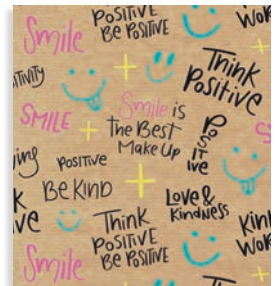 Smile
POSITIVE
BE POSITIVE
WOR
ITIVITY
Think
Positive
SMILE
Smile is
the Best
Make Up
POSITIVE
ing
POSITIVE
BE KIND
LOVE &
KINDNESS
K
VE
Think
POSITIVE
BE POSITIVE
KIN
WOR
Smile
Th